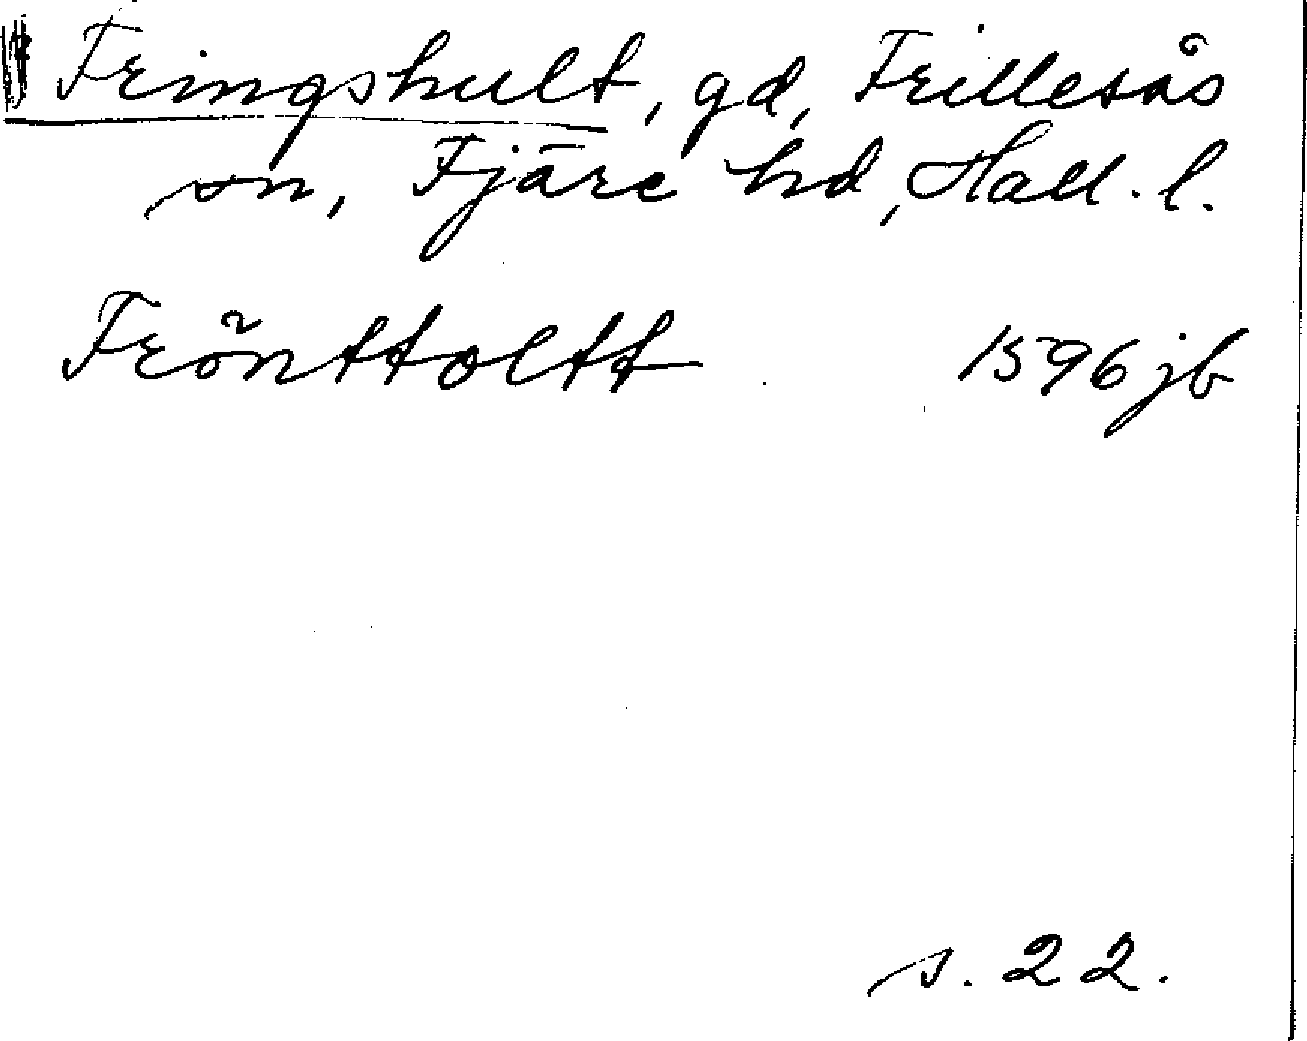 Fringshult, gd, Frillesås
sn, Fjäre hd, Hall. l.
Frönttoltt 1596 jb
s. 22.